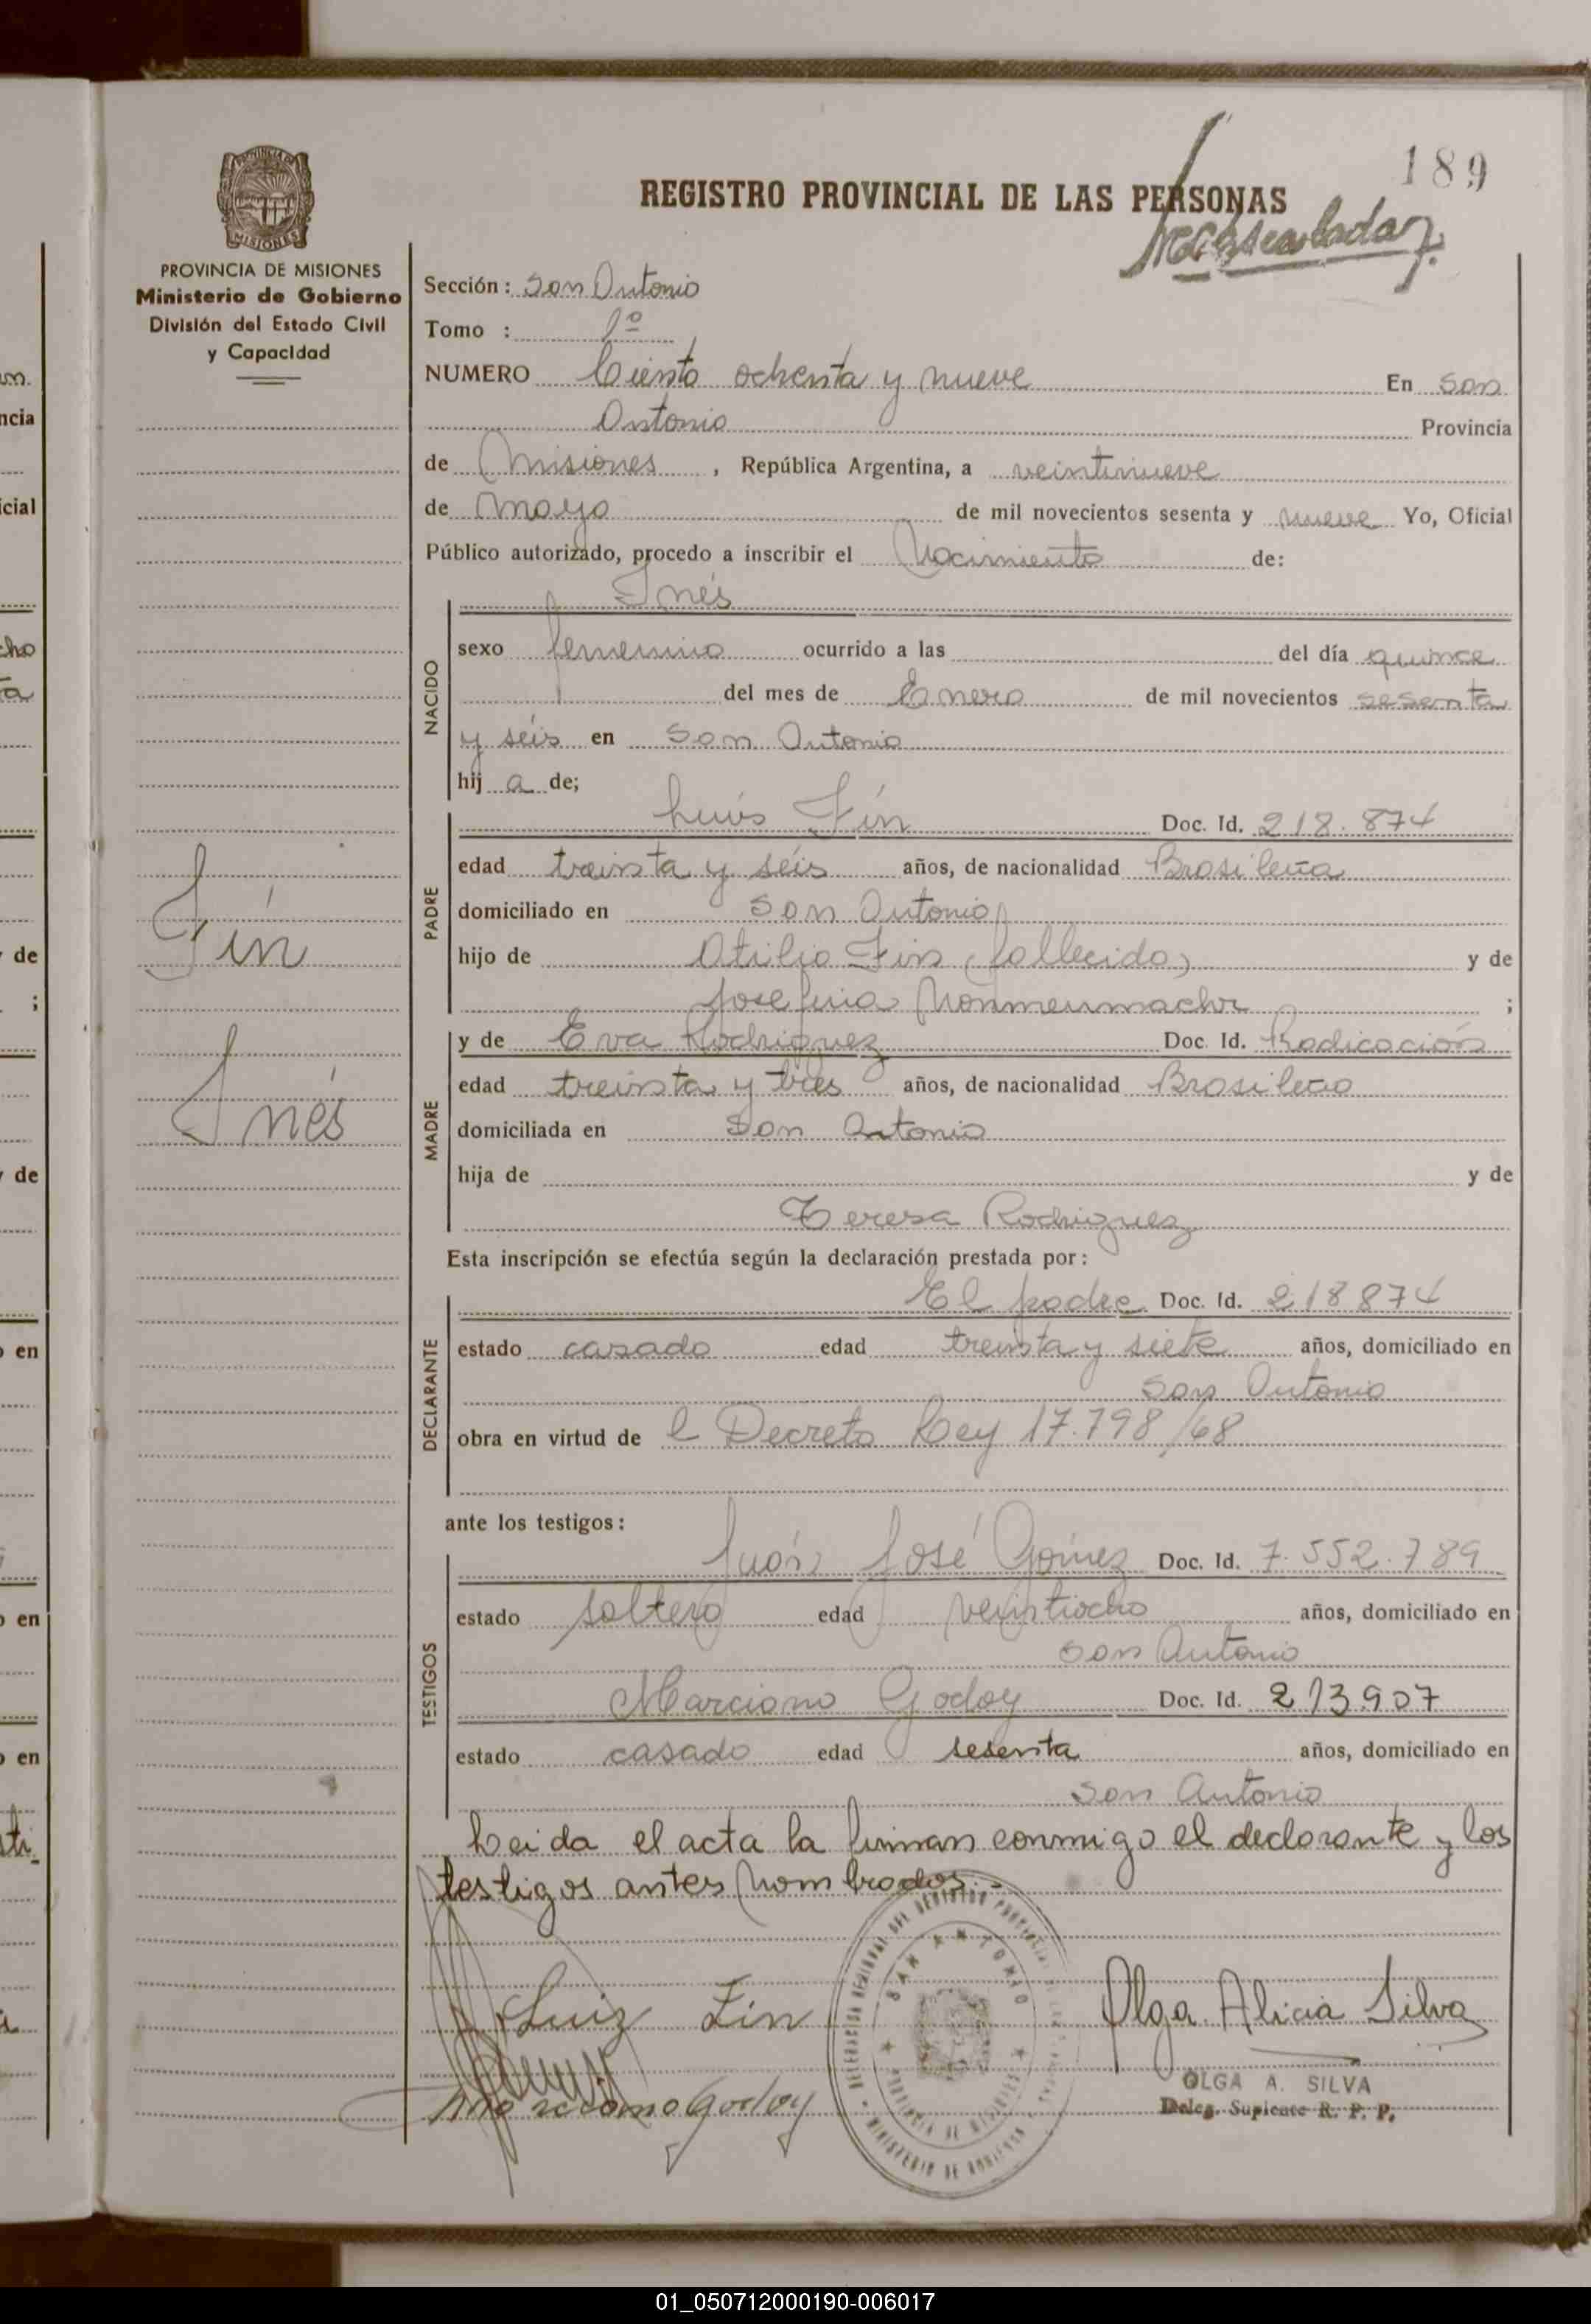 189
REGISTRO PROVINCIAL DE LAS PERSONAS
PROVINCIA DE MISIONES
Ministerio de Gobierno
División del Estado Civil
y Capacidad
Sección: San Antonio
Tomo : 1º
NUMERO Ciento ochenta y nueve En San
Antonio Provincia
de Misiones, República Argentina, a veintinueve
de Mayo de mil novecientos sesenta y nueve Yo, Oficial
Público autorizado, procedo a inscribir el Nacimiento de:
NACIDO
Inés
sexo femenino ocurrido a las del día quince
del mes de Enero de mil novecientos sesenta
y séis en San Antonio
hij a de;
PADRE
Luis Fín Doc. Id. 218.874
edad treinta y séis años, de nacionalidad Brasileña
domiciliado en San Antonio
hijo de Atilio Fin (fallecido) y de
Josefina Nonnenmacher ;
MADRE
y de Eva Rodriguez Doc. Id. Radicación
edad treinta y tres años, de nacionalidad Brasileña
domiciliada en San Antonio
hija de y de
Teresa Rodriguez
Fín
Inés
Esta inscripción se efectúa según la declaración prestada por:
DECLARANTE
El padre Doc. Id. 218874
estado casado edad treinta y siete años, domiciliado en
San Antonio
obra en virtud de l Decreto Ley 17.798/68
ante los testigos:
TESTIGOS
Juan José Gomez Doc. Id. 7.552.789
estado soltero edad veintiocho años, domiciliado en
San Antonio
Marciano Godoy Doc. Id. 213.907
estado casado edad sesenta años, domiciliado en
San Antonio
Leida el acta la firman conmigo el declarante y los
testigos antes nombrados.-
Luiz Fin
Olga Alicia Silva
OLGA A. SILVA
Deleg. Suplente R. P. P.
Godoy
01_050712000190-006017